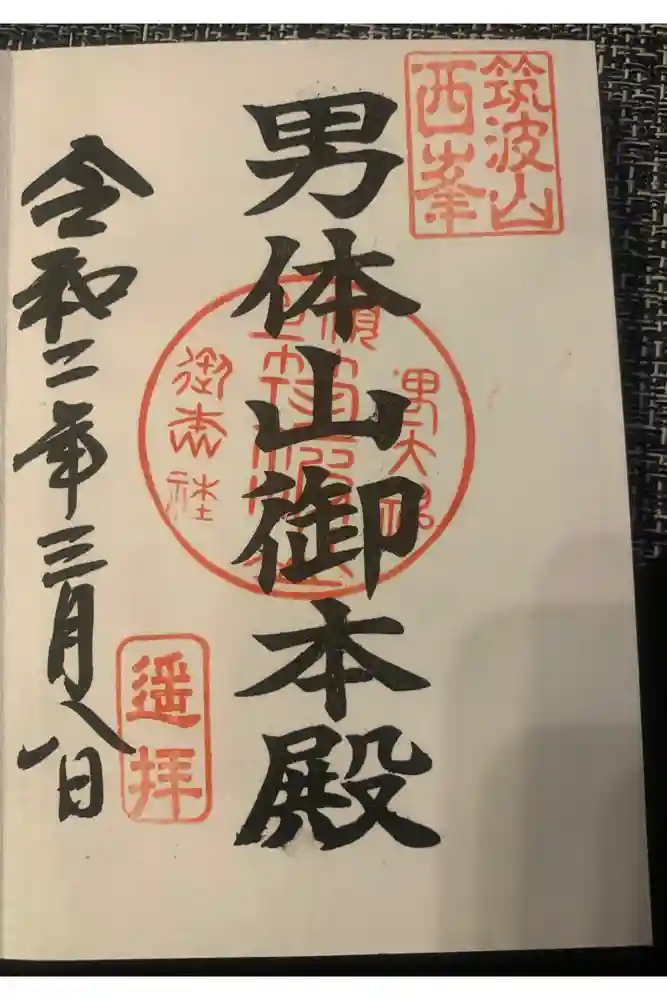 筑波山
西峯
男体山御本殿
男大神
御本社
遥拝
令和二年三月八日